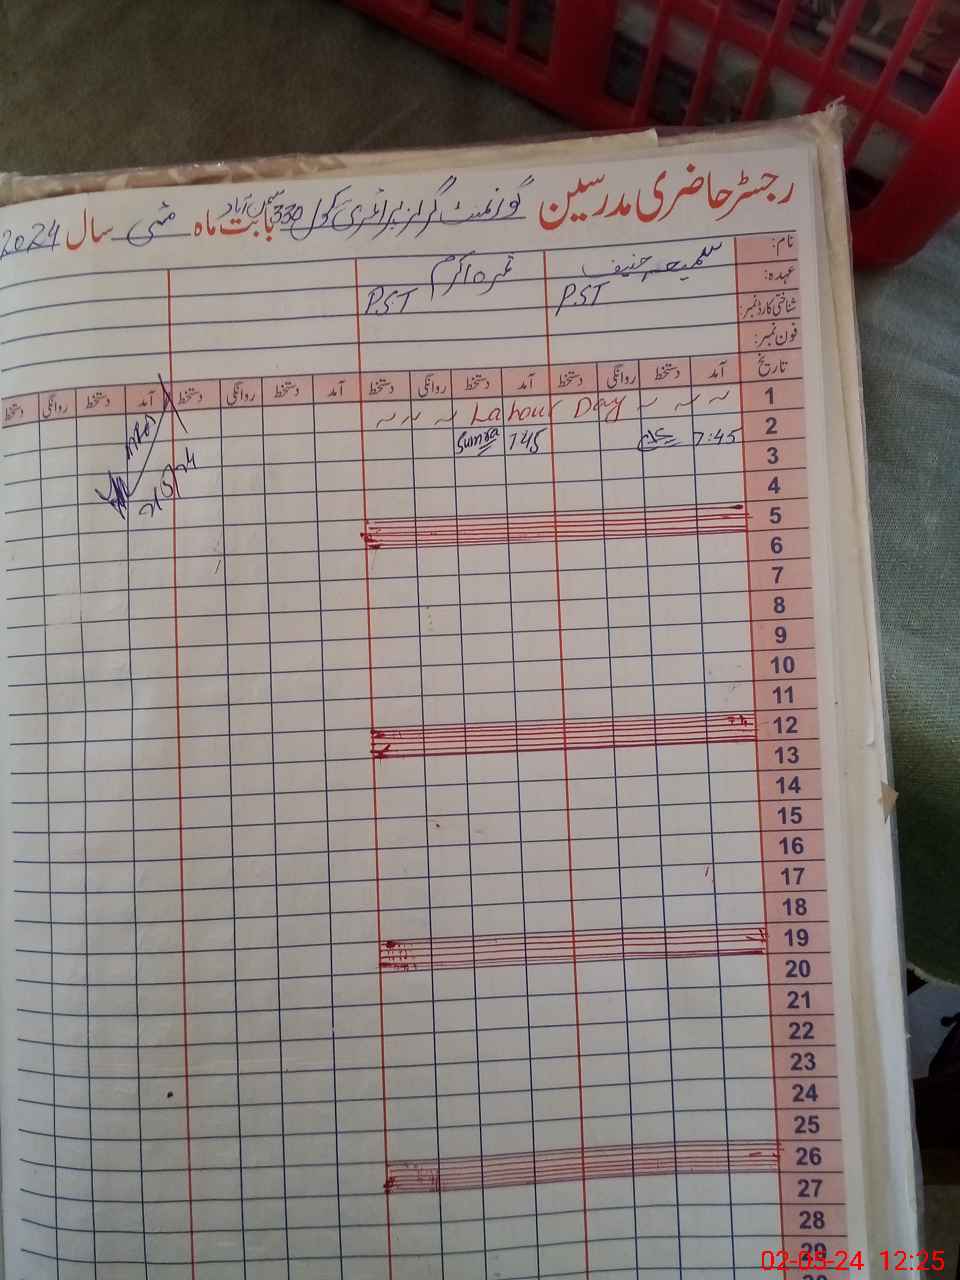 رجسٹر حاضری مدرسین گورنمنٹ گرلز پرائمری سکول 330 بابت ماہ مئی سال 2024
نام:
سمیعہ حنیف
عہدہ: PST PST
شناختی کارڈ نمبر:
فون نمبر:
تاریخ آمد دستخط روانگی دستخط آمد دستخط روانگی دستخط آمد دستخط روانگی دستخط آمد دستخط روانگی دستخط
1 ~ ~ ~ Labour Day ~ ~ ~
2 7:45 7:45 Sumra
3
4
5
6
7
8
9
10
11
12
13
14
15
16
17
18
19
20
21
22
23
24
25
26
27
28
29
02-05-24 12:25